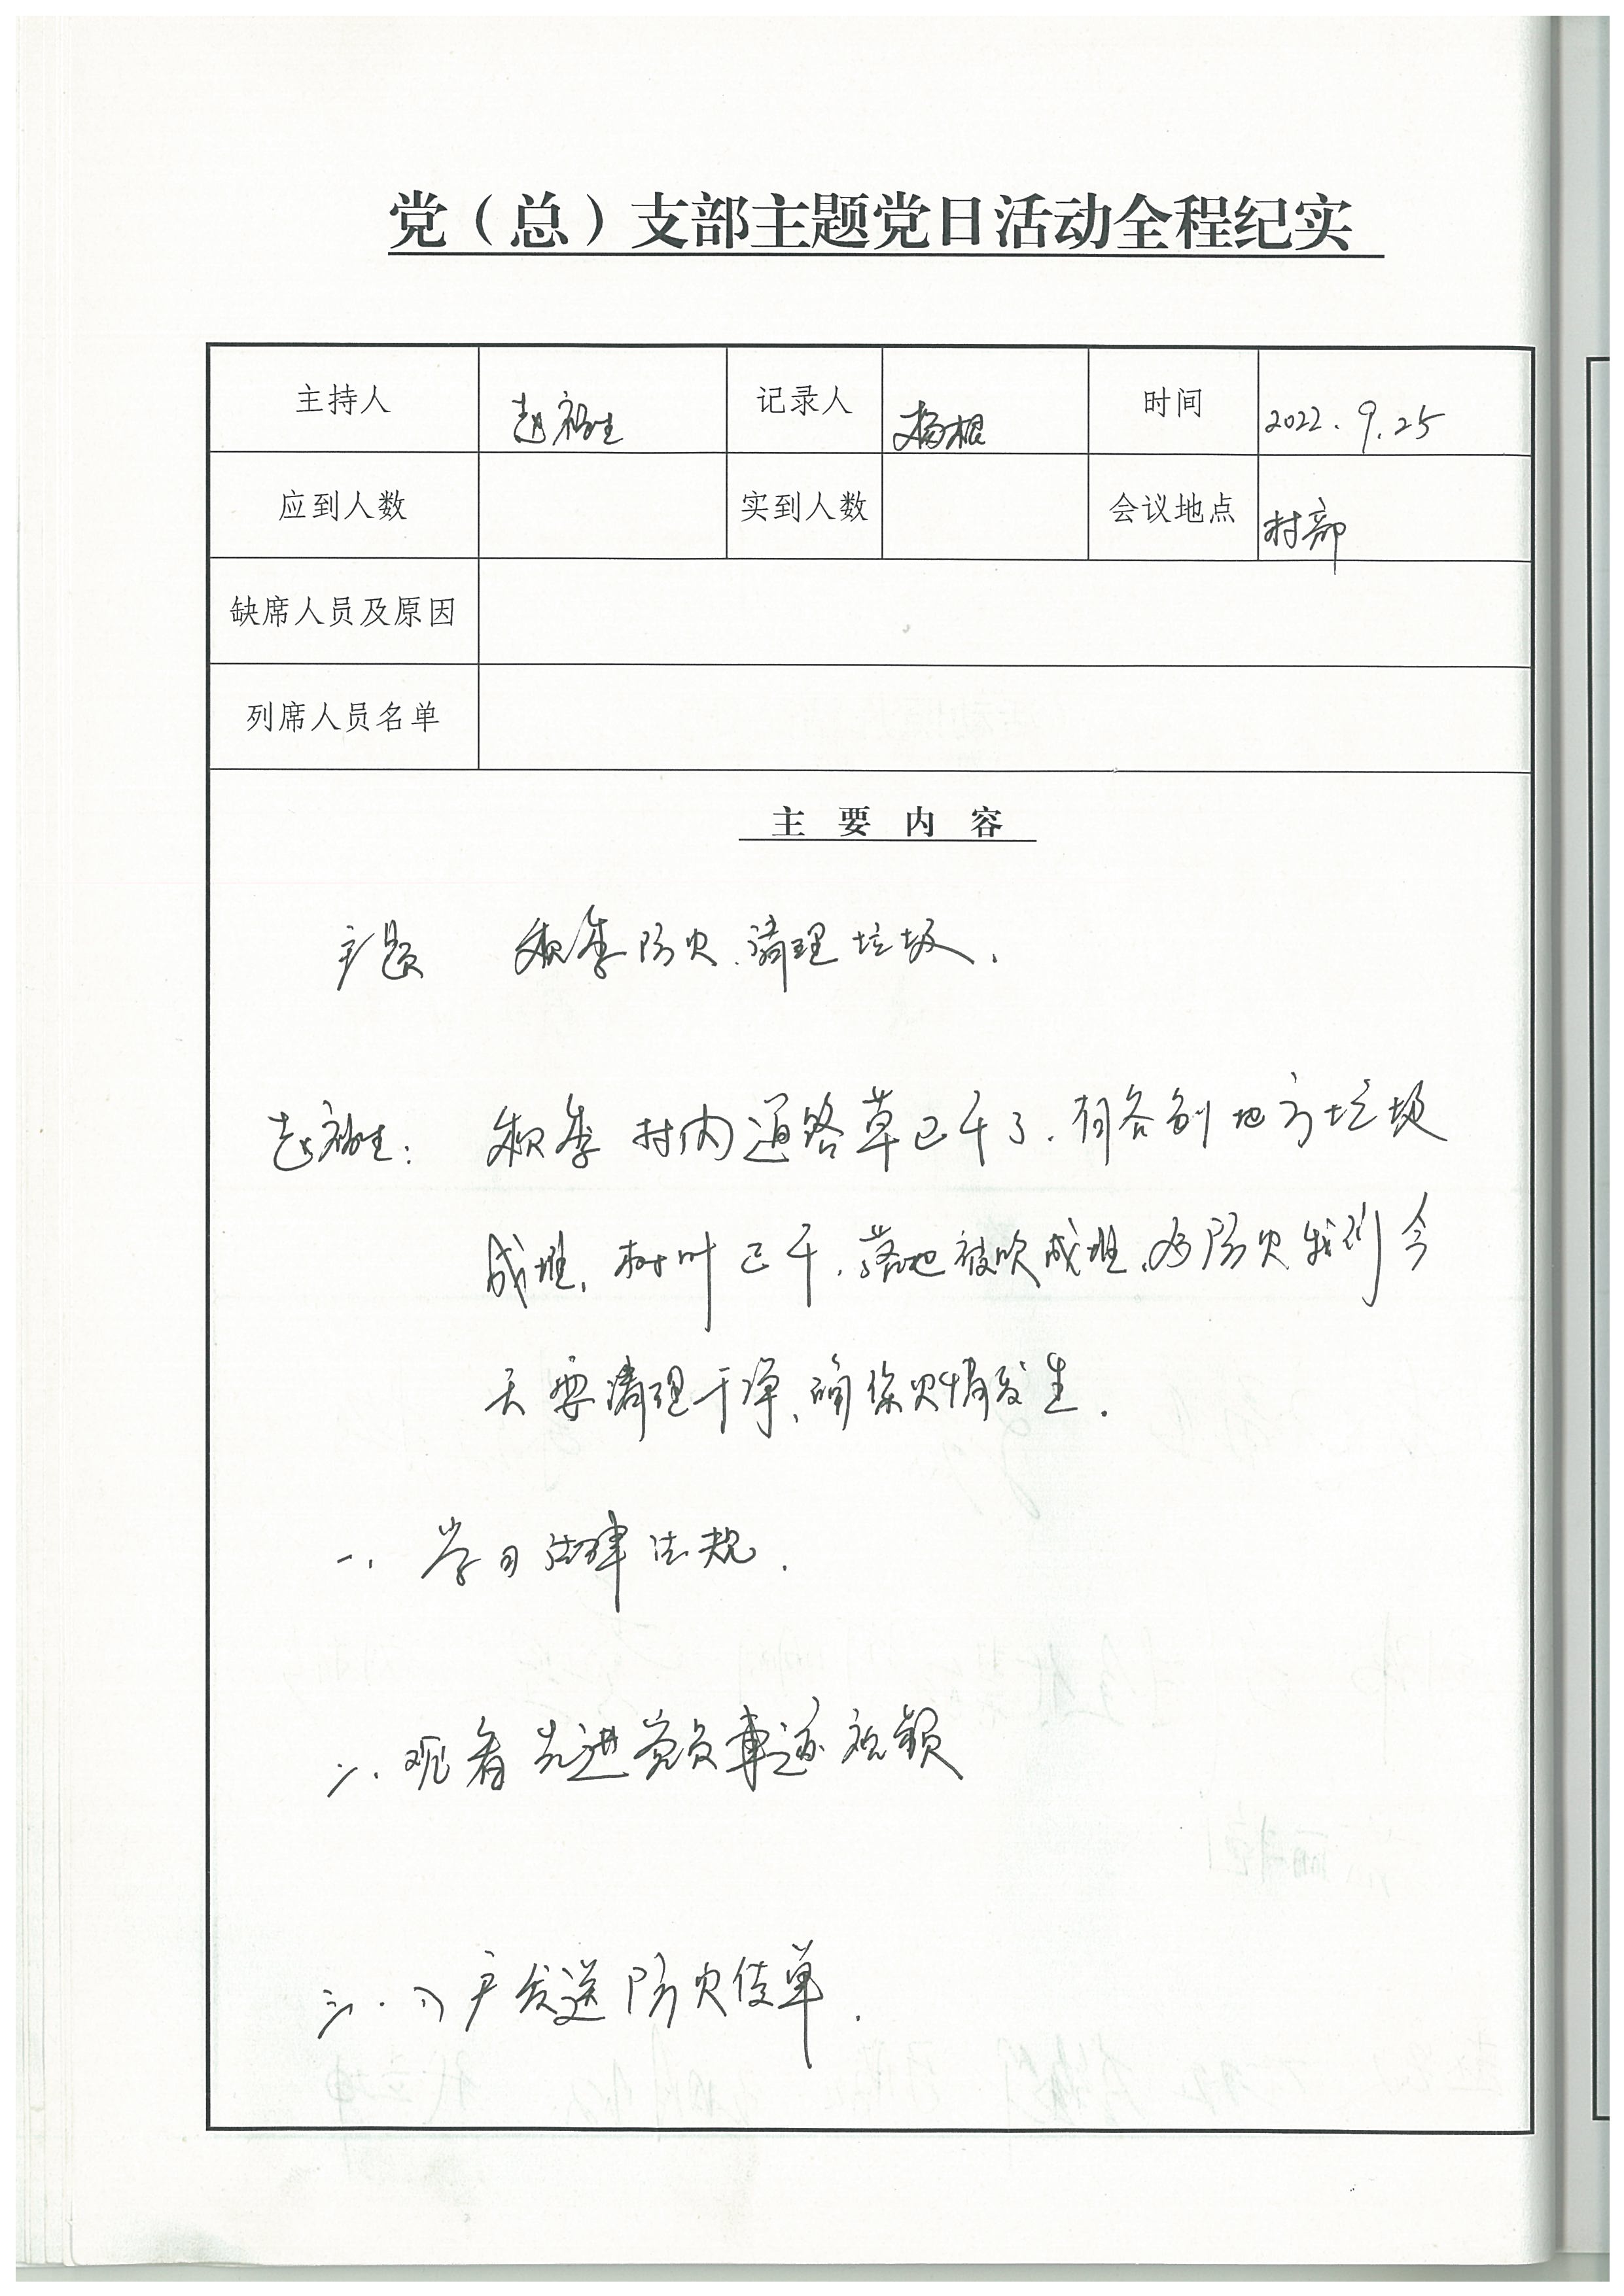 党（总）支部主题党日活动全程纪实
主持人 赵裕生 记录人 杨根 时间 2022.9.25
应到人数 实到人数 会议地点 村部
缺席人员及原因
列席人员名单
主要内容
主题 秋季防火、清理垃圾、
赵裕生： 秋季村内道路草已干了.有各别地方垃圾
成堆,树叶已干.落地被吹成堆,为防火我们今
天要清理干净,确保火情发生.
一、学习法律法规.
二、观看先进党员事迹视频
三、入户发送防火传单.